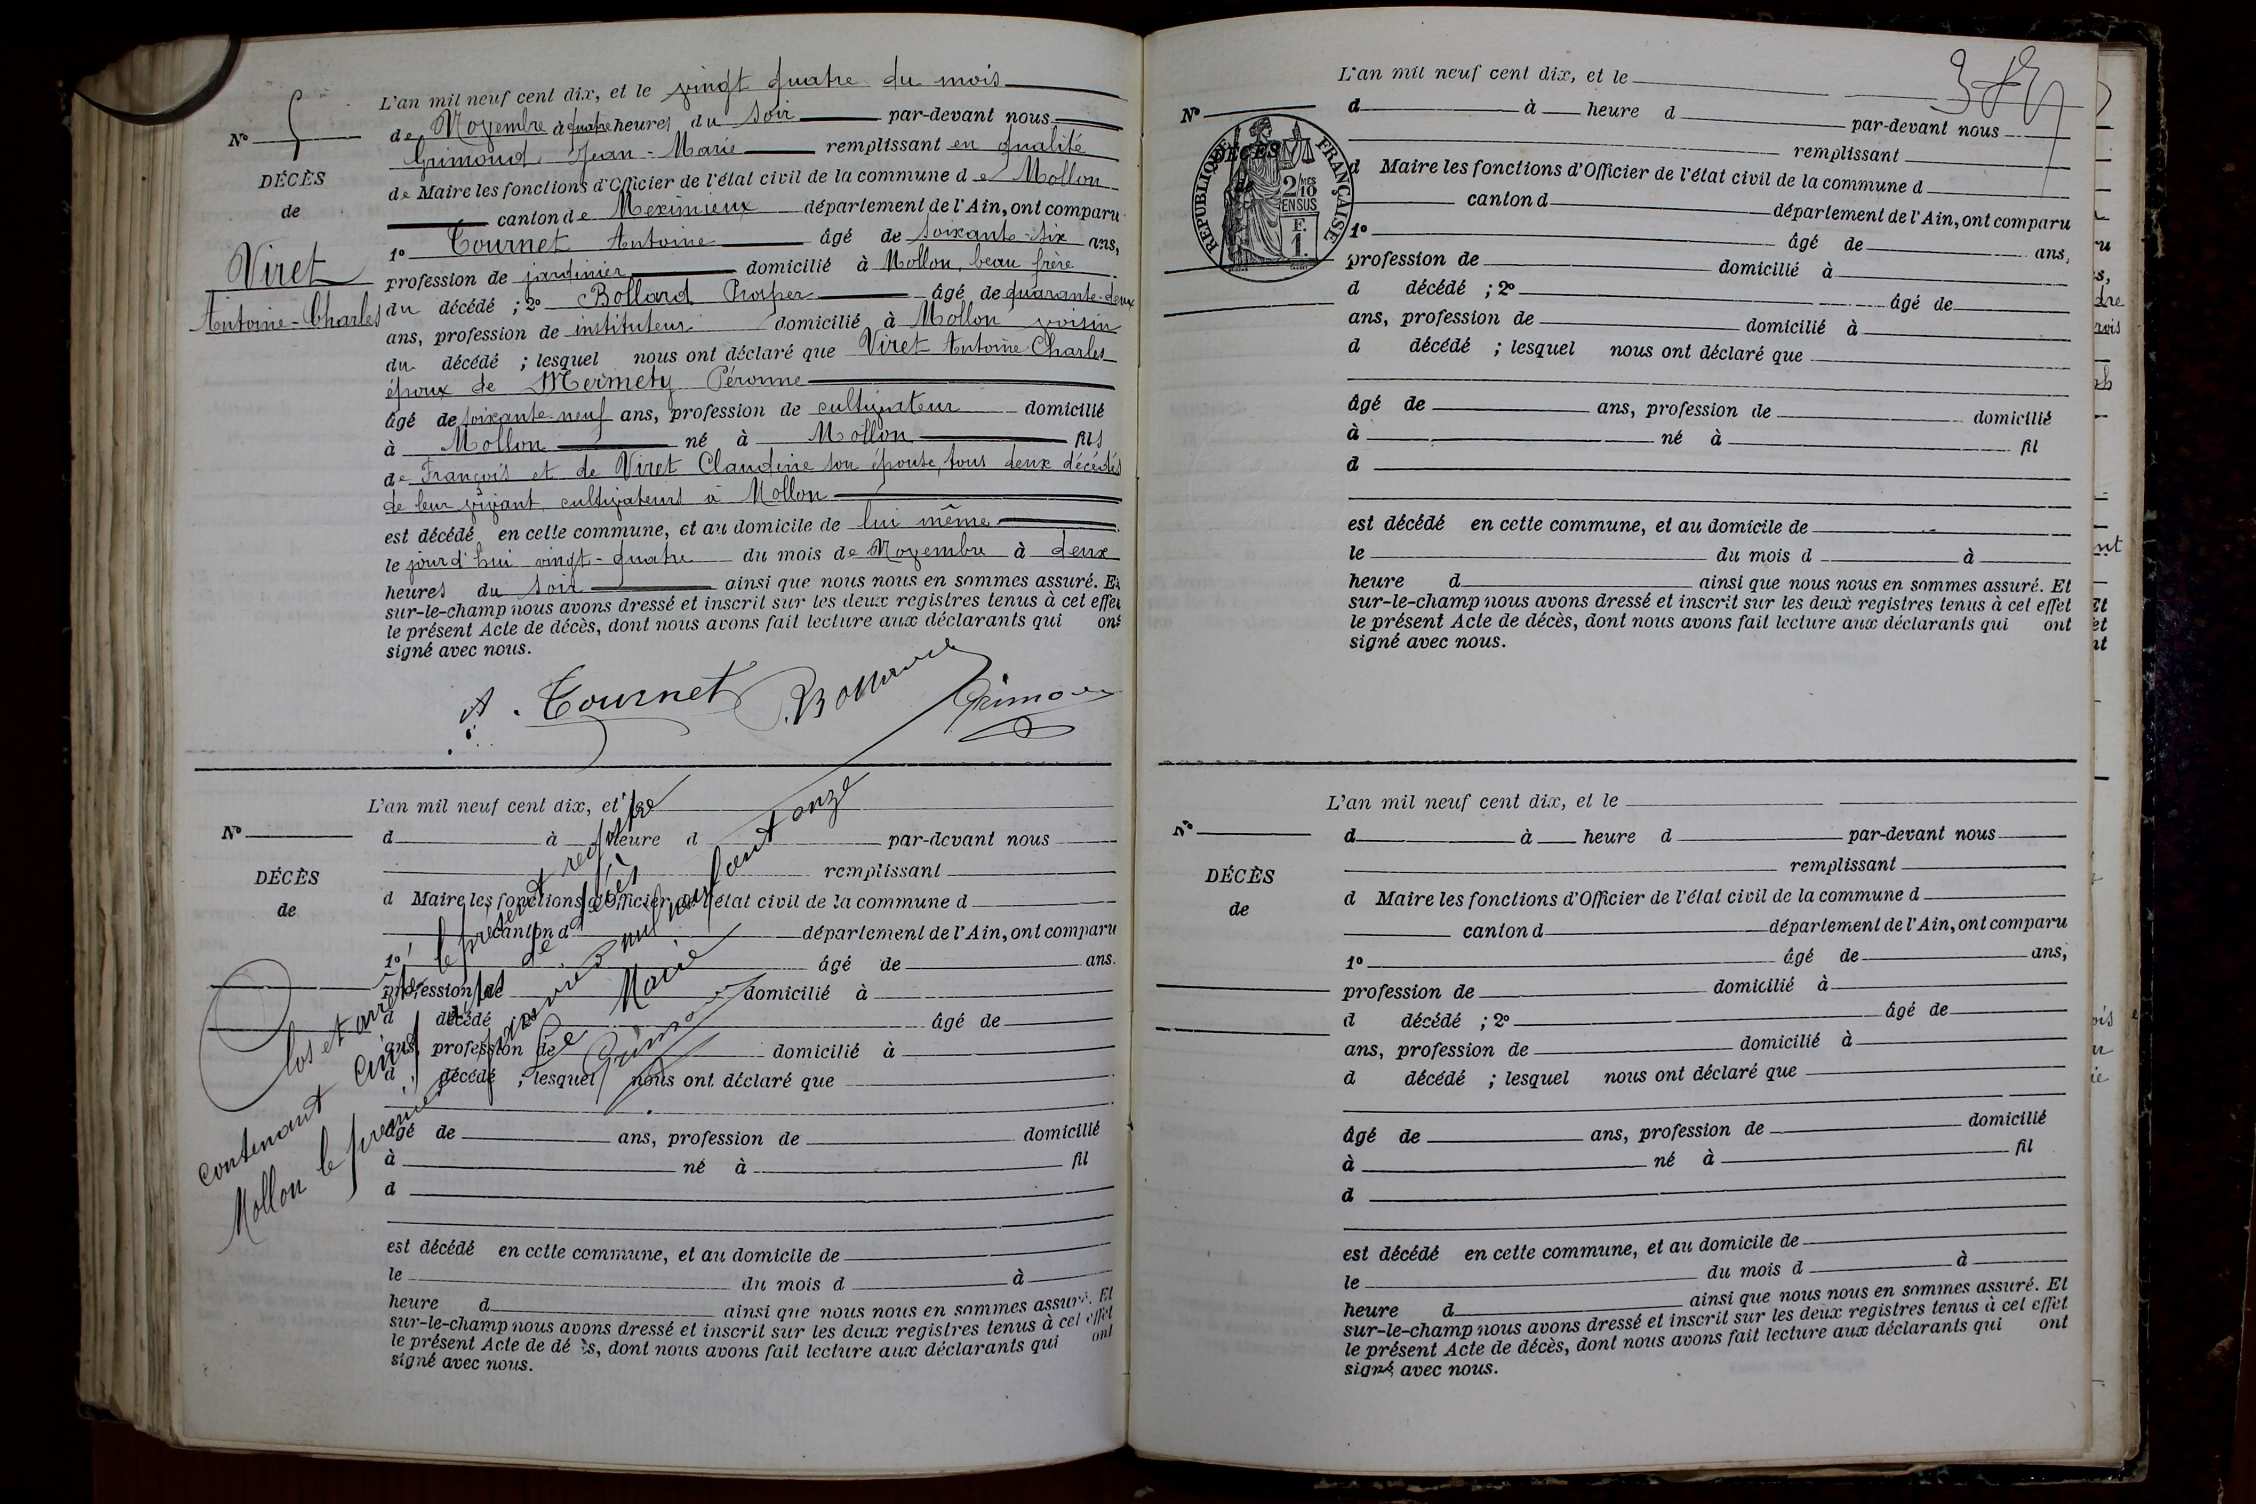 L'an mil neuf cent dix, et le vingt quatre du mois
N° 5
de Novembre à quatre heures du soir par-devant nous
Grimoud Jean-Marie remplissant en qualité
DÉCÈS
de Maire les fonctions d'Officier de l'état civil de la commune de Mollon
de
canton de Meximieux département de l'Ain, ont comparu
1° Tournet Antoine âgé de soixante-six ans,
Viret
profession de jardinier domicilié à Mollon, beau frère
Antoine-Charles
du décédé ; 2° Bollard Prosper âgé de quarante-deux
ans, profession de instituteur domicilié à Mollon voisin
du décédé ; lesquel nous ont déclaré que Viret Antoine Charles
époux de Mermety Péronne
âgé de soixante-neuf ans, profession de cultivateur domicilié
à Mollon né à Mollon fils
de François et de Viret Claudine son épouse, tous deux décédés
de leur vivant cultivateurs à Mollon
est décédé en cette commune, et au domicile de lui même
le jourd'hui vingt-quatre du mois de Novembre à deux
heures du soir ainsi que nous nous en sommes assuré. Et
sur-le-champ nous avons dressé et inscrit sur les deux registres tenus à cet effet
le présent Acte de décès, dont nous avons fait lecture aux déclarants qui ont
signé avec nous.
A. Tournet P. Bollard Grimoud
L'an mil neuf cent dix, et le
N°
d à heure d par-devant nous
remplissant
DÉCÈS
d Maire les fonctions d'Officier de l'état civil de la commune d
de
canton d département de l'Ain, ont comparu
1° âgé de ans.
profession de domicilié à
d décédé âgé de
ans, profession de domicilié à
d décédé ; lesquel nous ont déclaré que
âgé de ans, profession de domicilié
à né à fil
d
est décédé en cette commune, et au domicile de
le du mois d à
heure d ainsi que nous nous en sommes assuré. Et
sur-le-champ nous avons dressé et inscrit sur les deux registres tenus à cet effet
le présent Acte de décès, dont nous avons fait lecture aux déclarants qui ont
signé avec nous.
Clos et arrêté le présent registre
contenant cinq actes de décès
Mollon le premier janvier mil neuf cent onze
Le Maire
Grimoud
L'an mil neuf cent dix, et le
N°
d à heure d par-devant nous
remplissant
DÉCÈS
RÉPUBLIQUE FRANÇAISE
2/10 MES
EN SUS
F.
1.
d Maire les fonctions d'Officier de l'état civil de la commune d
canton d département de l'Ain, ont comparu
1° âgé de ans,
profession de domicilié à
d décédé ; 2° âgé de
ans, profession de domicilié à
d décédé ; lesquel nous ont déclaré que
âgé de ans, profession de domicilié
à né à fil
d
est décédé en cette commune, et au domicile de
le du mois d à
heure d ainsi que nous nous en sommes assuré. Et
sur-le-champ nous avons dressé et inscrit sur les deux registres tenus à cet effet
le présent Acte de décès, dont nous avons fait lecture aux déclarants qui ont
signé avec nous.
L'an mil neuf cent dix, et le
N°
d à heure d par-devant nous
remplissant
DÉCÈS
d Maire les fonctions d'Officier de l'état civil de la commune d
de
canton d département de l'Ain, ont comparu
1° âgé de ans,
profession de domicilié à
d décédé ; 2° âgé de
ans, profession de domicilié à
d décédé ; lesquel nous ont déclaré que
âgé de ans, profession de domicilié
à né à fil
d
est décédé en cette commune, et au domicile de
le du mois d à
heure d ainsi que nous nous en sommes assuré. Et
sur-le-champ nous avons dressé et inscrit sur les deux registres tenus à cet effet
le présent Acte de décès, dont nous avons fait lecture aux déclarants qui ont
signé avec nous.